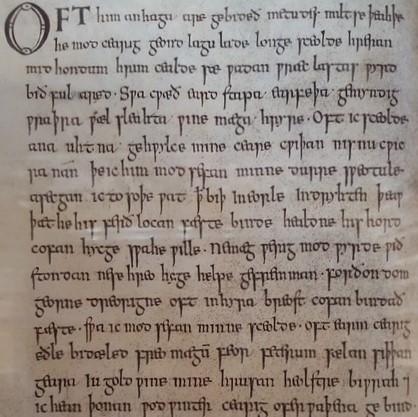 OFT him anhaga are gebideð metudes miltse þeahþe
he mod cearig geond lagu lade longe sceolde hreran
mid hondum hrim cealde sæ ƿadan ƿræc lastas ƿyrd
bið ful aræd · Sƿa cƿæð eard stapa earfeþa gemyndig
ƿraþra ƿæl sleahta ƿine mæga hryre · Oft ic sceolde
ana uhtna gehƿylce mine ceare cƿiþan nis nu cƿic
ra nan þe ic him mod sefan minne durre sƿeotule
asecgan · ic to soþe ƿat ꝥ biþ in eorle indryhten þeaƿ
þæt he his ferð locan fæste binde healdne his hord
cofan hycge sƿa he ƿille · Ne mæg ƿerig mod ƿyrde ƿið
stondan ne se hreo hyge helpe gefremman · fordon dom
georne dreorigne oft in hyra breost cofan bindað
fæste · sƿa ic mod sefan minne sceolde · oft earm cearig
eðle bidæled freo magū feor feterum sælan siþþan
geara iu gold ƿine mine hrusan heolstre biƿrah ⁊
ic hean þonan ƿod ƿinter cearig ofer ƿaþema gebind